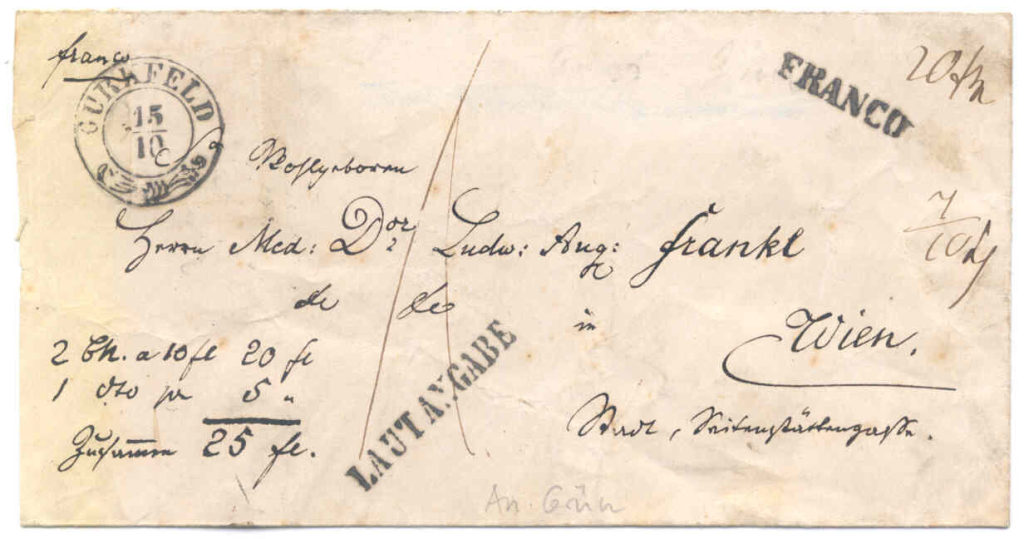 franco
GURKFELD
15
10
FRANCO
Wohlgeboren
Herrn Med: Dor Ludw: Aug: Frankl
in
Wien.
Stadt, Seitenstättengasse.
2 Bn. a 10 fl 20 fl
1 dto pr 5 "
Zusammen 25 fl.
LAUT ANGABE
7
10
An. Grün